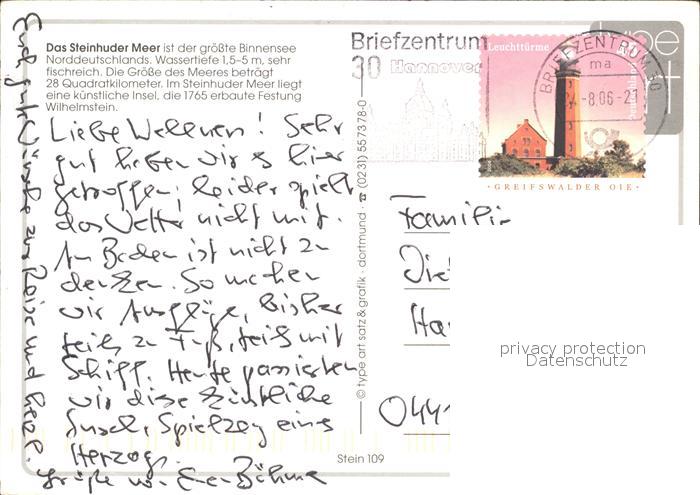 Das Steinhuder Meer ist der größte Binnensee
Norddeutschlands. Wassertiefe 1,5–5 m, sehr
fischreich. Die Größe des Meeres beträgt
28 Quadratkilometer. Im Steinhuder Meer liegt
eine künstliche Insel, die 1765 erbaute Festung
Wilhelmstein.
Liebe ! Sehr
gut haben wir es hier
getroffen; leider spielt
das Wetter nicht mit.
An Baden ist nicht zu
denken. So machen
wir Ausflüge, bisher
teils zu Fuß, teils mit
Schiff. Heute passierten
wir diese künstliche
Insel, Spielzeug eines
Herzogs.
Grüße v. Böhme
Euch gute Wünsche zur Reise und
© type art satz & grafik · dortmund · ☎ (0231) 557378-0
Stein 109
Briefzentrum
30 Hannover
Leuchttürme
Deutschland
BRIEFZENTRUM 30
ma
-8.06-21
· GREIFSWALDER OIE ·
type
Familie
Die
Ha
0441
privacy protection
Datenschutz